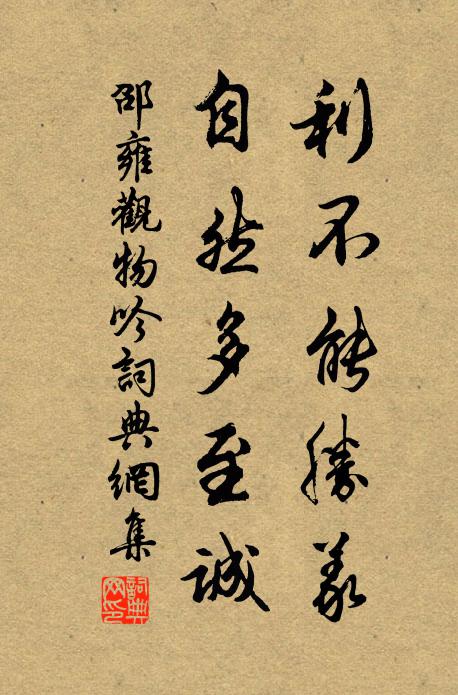 利不能勝義
自然多至誠
邵雍觀物吟詞典網集
詞典網印